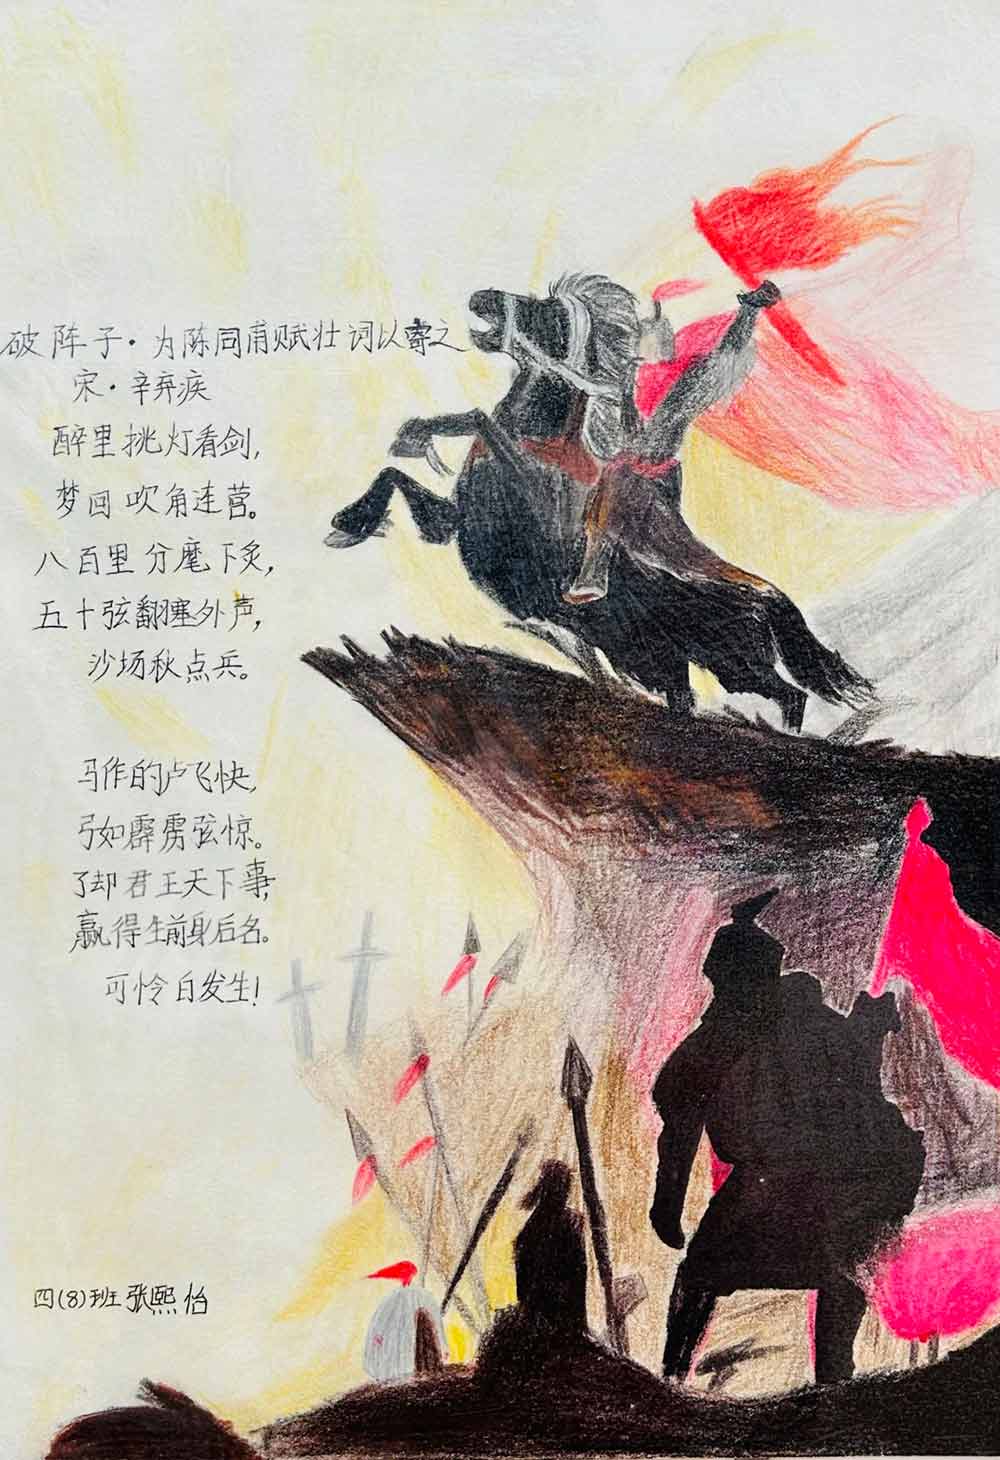 破阵子·为陈同甫赋壮词以寄之
宋·辛弃疾
醉里挑灯看剑,
梦回吹角连营。
八百里分麾下炙,
五十弦翻塞外声,
沙场秋点兵。
马作的卢飞快,
弓如霹雳弦惊。
了却君王天下事,
赢得生前身后名。
可怜白发生!
四(8)班张熙怡